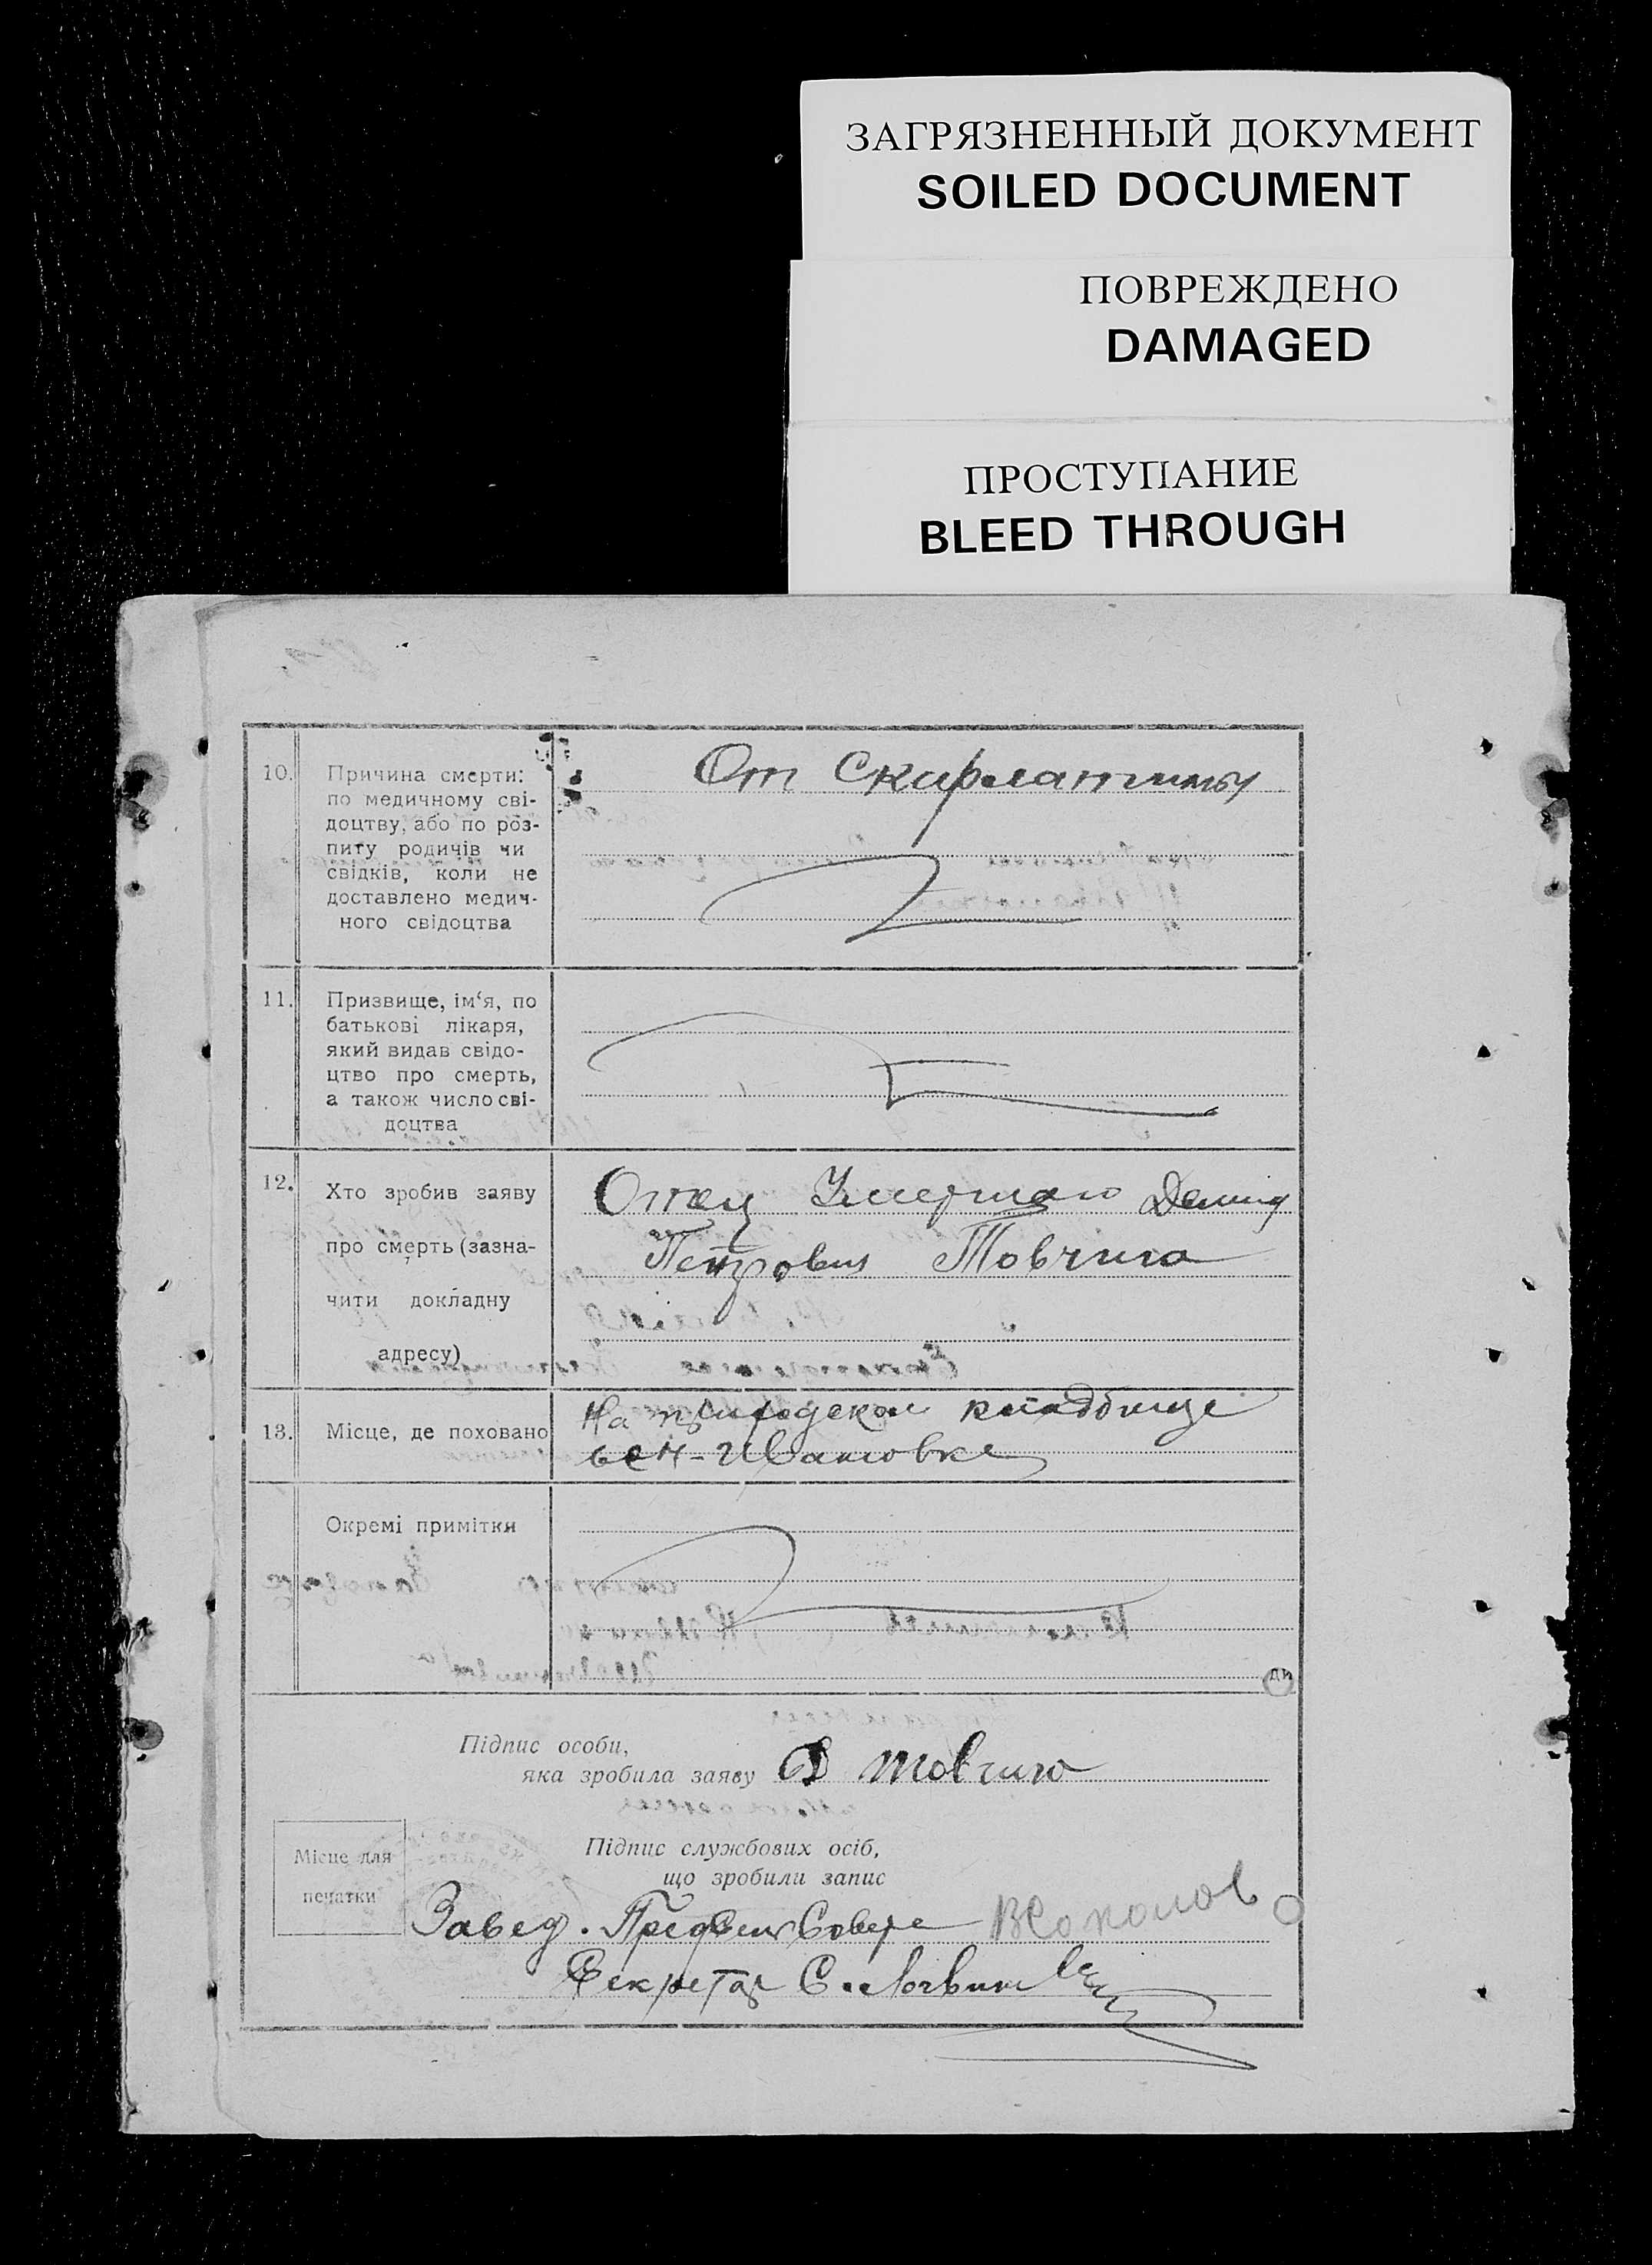 ЗАГРЯЗНЕННЫЙ ДОКУМЕНТ
SOILED DOCUMENT
ПОВРЕЖДЕНО
DAMAGED
ПРОСТУПАНИЕ
BLEED THROUGH
10.
Причина смерти:
по медичному сві-
доцтву, або по роз-
питу родичів чи
свідків, коли не
доставлено медич-
ного свідоцтва
От Скарлатины
11.
Призвище, ім‘я, по
батькові лікаря,
який видав свідо-
цтво про смерть,
а також число сві-
доцтва
12.
Хто зробив заяву
про смерть (зазна-
чити докладну
адресу)
Отец Умершаго Демид
Петрович Товчига
13.
Місце, де поховано
На кладбище
Ивановке
Окремі примітки
Підпис особи,
яка зробила заяву
Д Товчиго
Місце для
печатки
Підпис службових осіб,
що зробили запис
Завед. ВСоколов
Секретар С.